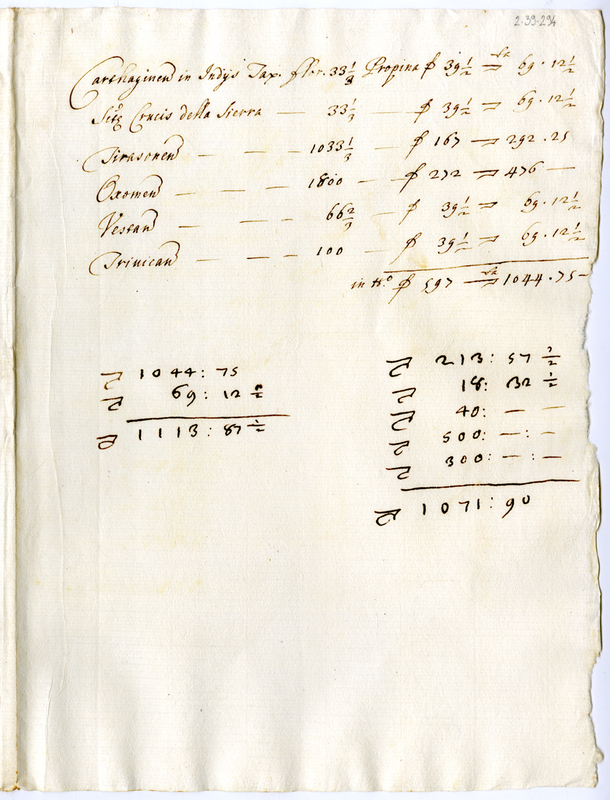 2-39-294
Carthaginen in Indys Tax. flor. 33 1/3 Propina ƒ 39 1/2 = 69.12 1/2
Stę Crucis della Sierra — 33 1/3 — ƒ 39 1/2 = 69.12 1/2
Tirasonen — — — 1033 1/3 — ƒ 167 = 292.25
Oxomen — — — 1800 — ƒ 272 = 476 —
Vestan — — — 66 2/3 — ƒ 39 1/2 = 69.12 1/2
Trivican — — — 100 — ƒ 39 1/2 = 69.12 1/2
in tt.º ƒ 597 = 1044.75 —
1044: 75
69: 12 1/2
1113: 87 1/2
213: 57 1/2
18: 32 1/2
40: — —
500: — : —
300: — : —
1071: 90